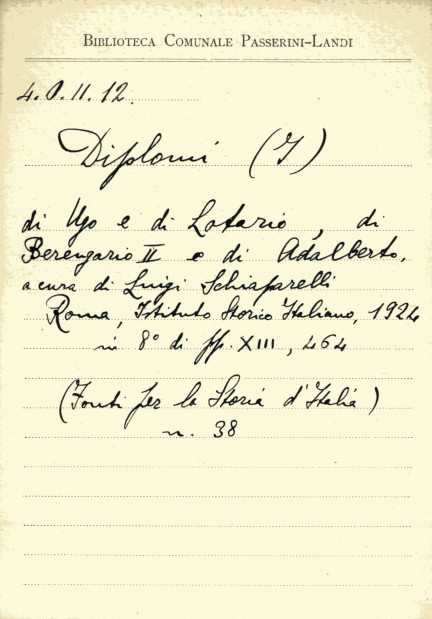 BIBLIOTECA COMUNALE PASSERINI-LANDI
4.O.II.12.
Diplomi (I)
di Ugo e di Lotario, di
Berengario II e di Adalberto,
a cura di Luigi Schiaparelli
Roma, Istituto Storico Italiano, 1924
in 8° di pp. XIII, 464
(Fonti per la Storia d'Italia)
n. 38